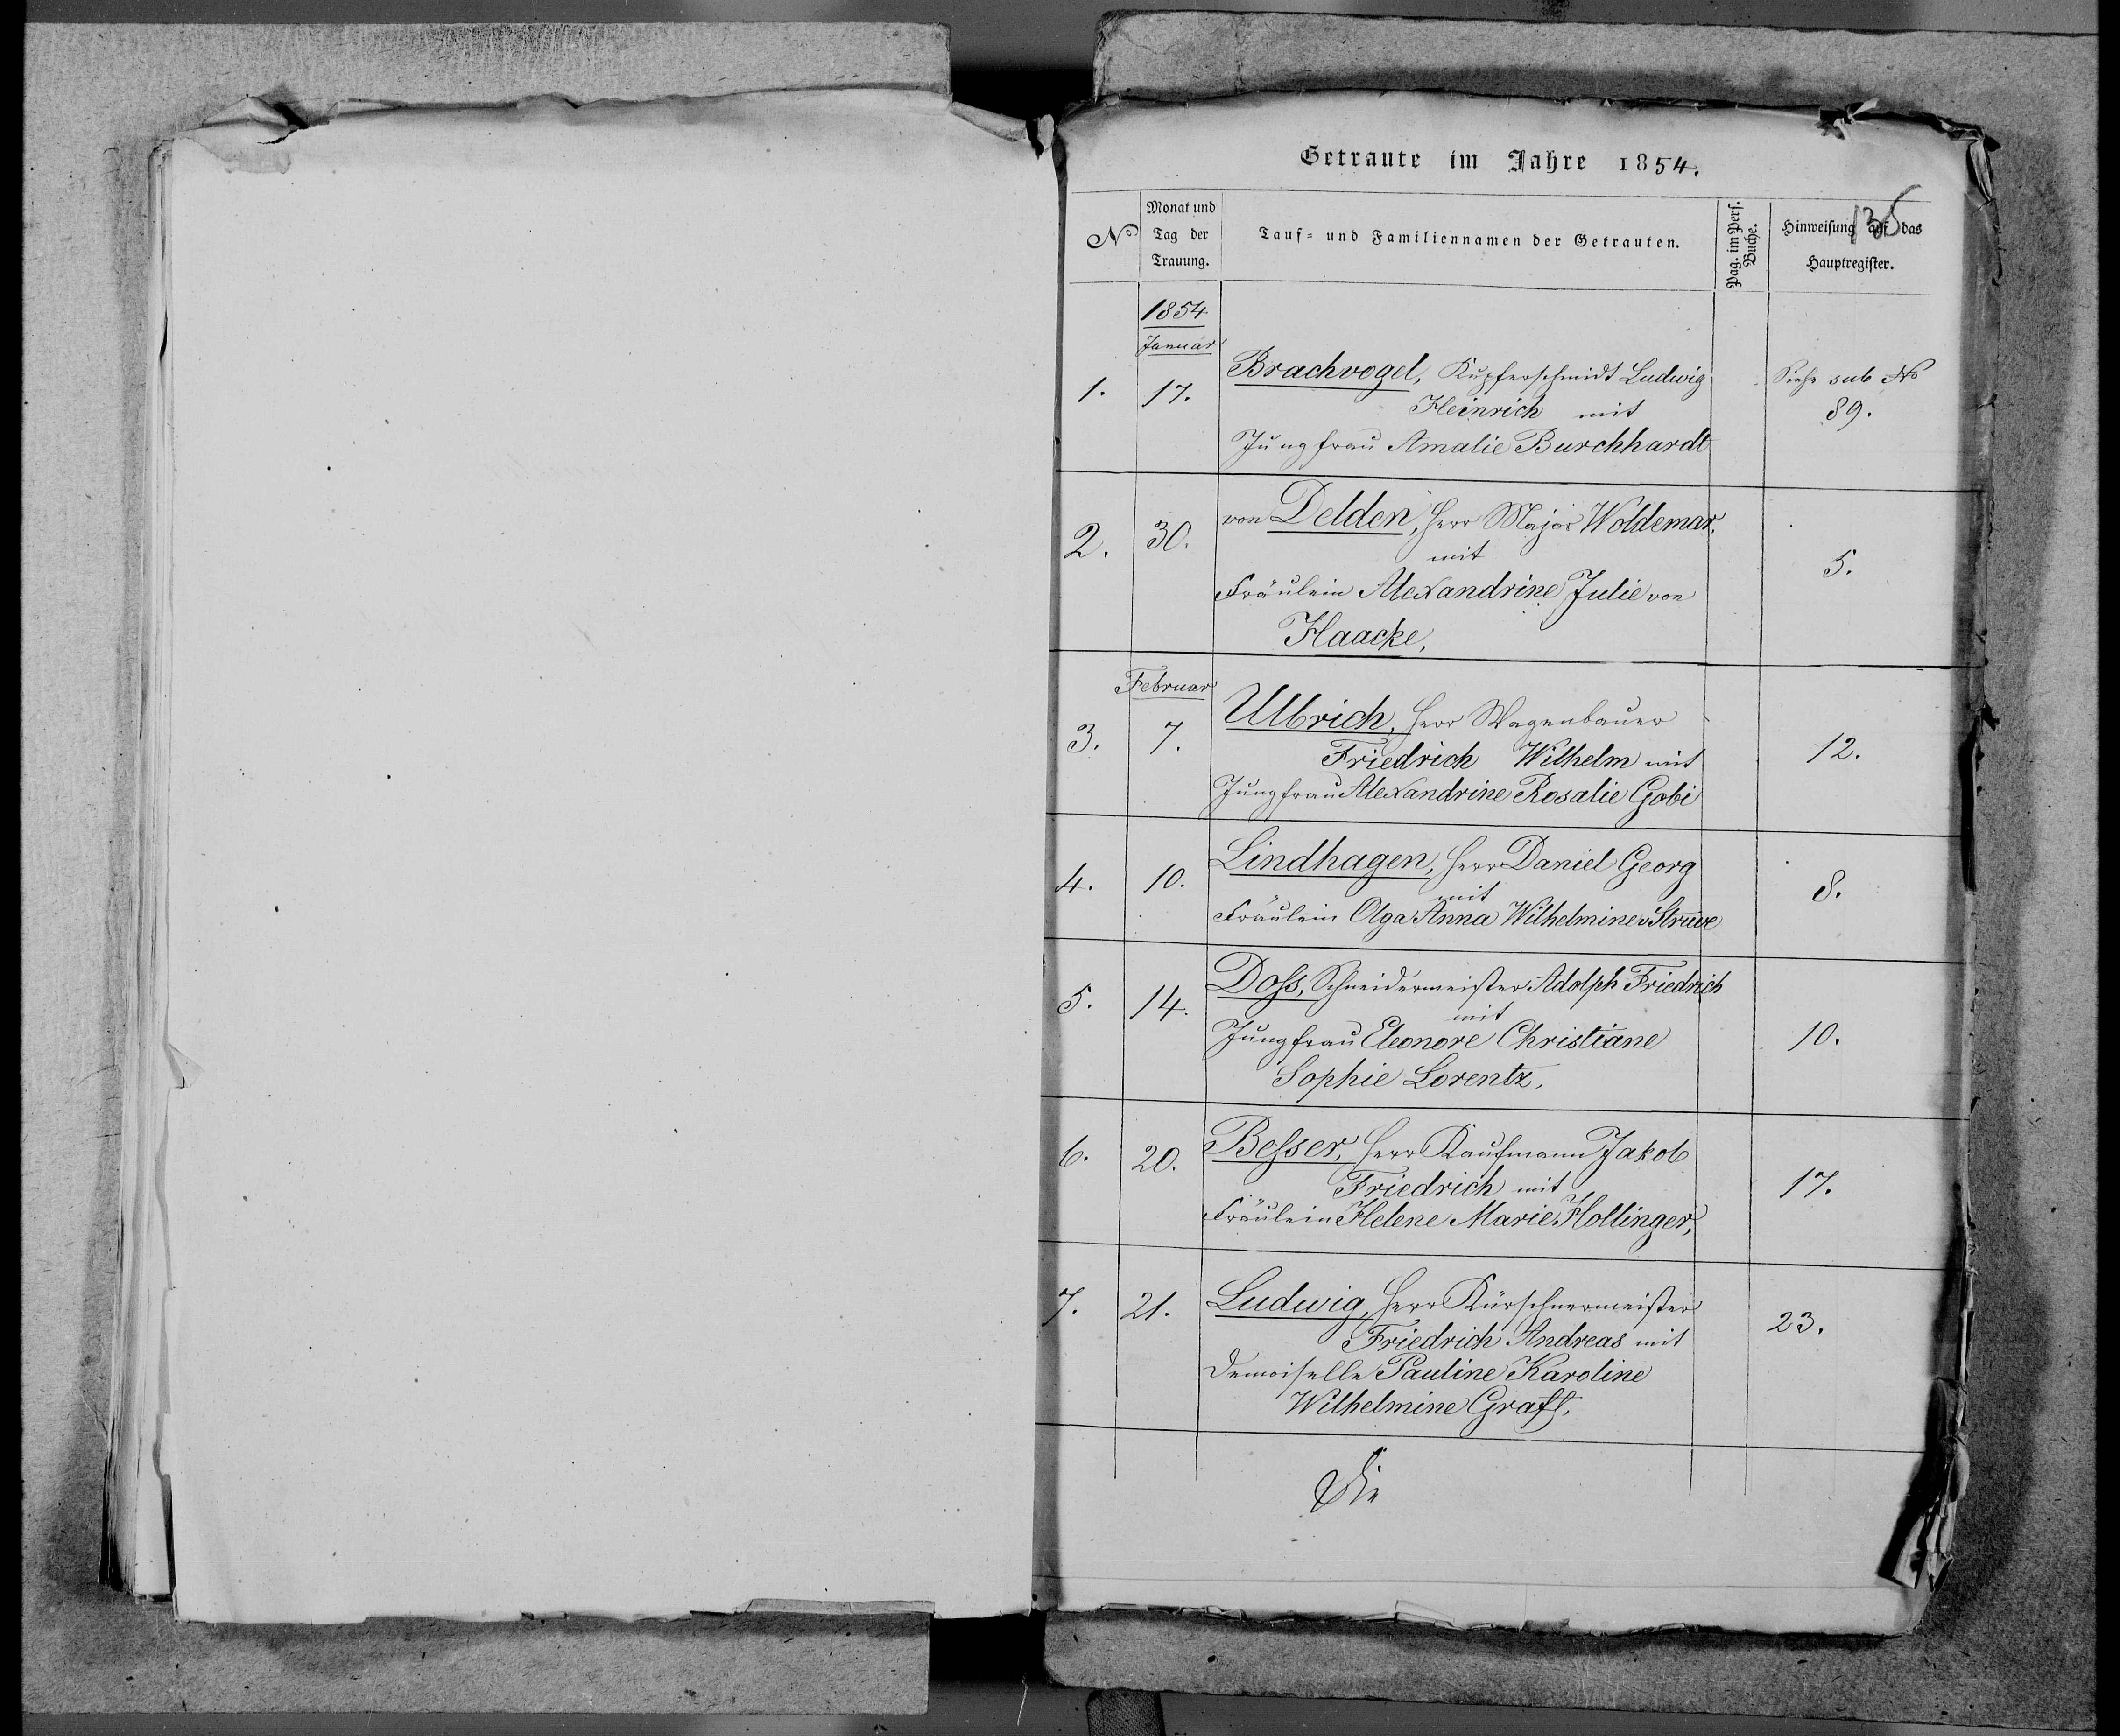 Getraute im Jahre 1854.
135
No
Monat und
Tag der
Trauung.
Tauf- und Familiennamen der Getrauten.
Pag. im Pers.
Buche.
Hinweisung auf das
Hauptregister.
1854
Januar
1. 17. Brachvogel, Kupferschmidt Ludwig Siehe sub No
Heinrich mit 89.
Jungfrau Amalie Burchhardt
2. 30. von Delden, Herr Major Woldemar.
mit 5.
Fräulein Alexandrine Julie von
Haacke,
Februar
3. 7. Ulbrich, Herr Wagenbauer
Friedrich Wilhelm mit 12.
Jungfrau Alexandrine Rosalie Gobi
4. 10. Lindhagen, Herr Daniel Georg
mit 8.
Fräulein Olga Anna Wilhelmine v Struve
5. 14. Doſs, Schneidermeister Adolph Friedrich
mit
Jungfrau Eleonore Christiane 10.
Sophie Lorentz,
6. 20. Beſser, Herr Kaufmann Jakob
Friedrich mit 17.
Fräulein Helene Marie Hollinger,
7. 21. Ludwig, Herr Kürschnermeister
Friedrich Andreas mit 23.
Demoiselle Pauline Karoline
Wilhelmine Graff,
Die